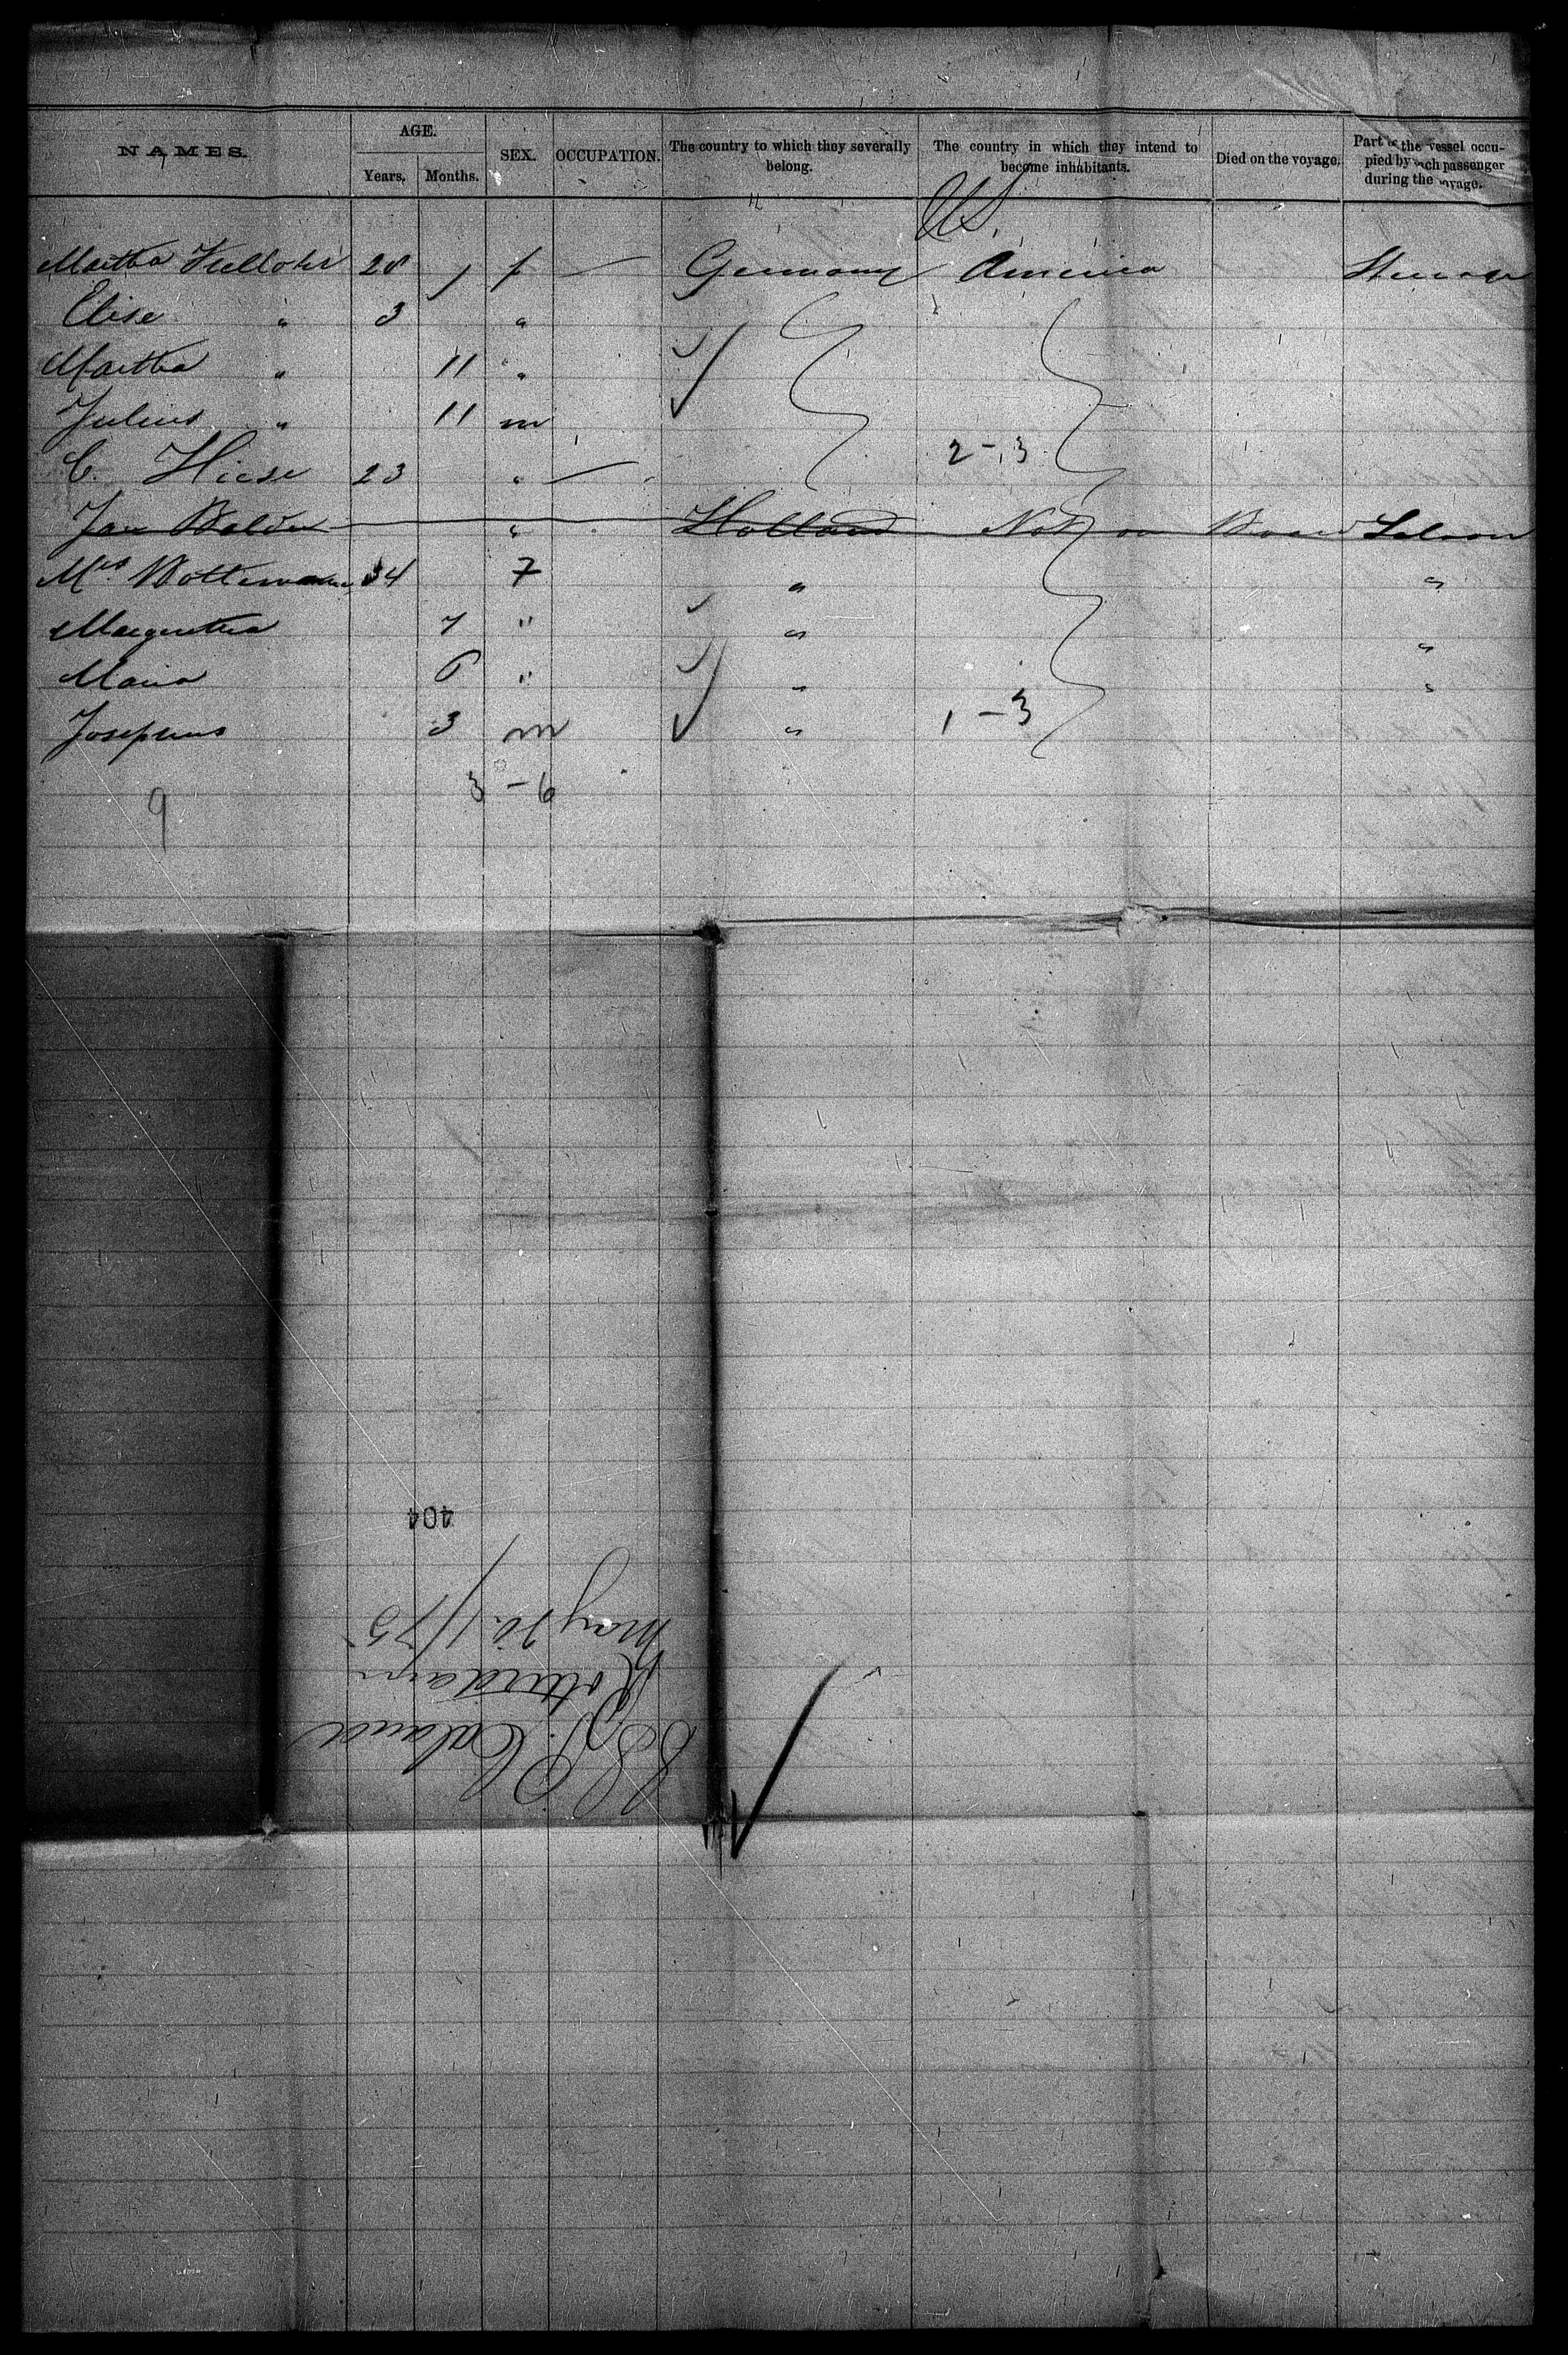 NAMES. AGE. SEX. OCCUPATION. The country to which they severally belong. The country in which they intend to become inhabitants. Died on the voyage. Part of the vessel occupied by each passenger during the voyage.
Years. Months.
US.
Martha 28 f — Germany America Steerage
Elise " 3 "
Martha " 11 "
Julius " 11 m
C. Hiese 23 " — 2-3
Jan Holland Not on Board Saloon
Mrs 34 F " "
Margretha 7 " " "
Maria 6 " " "
Josephus 3 m " 1-3
3-6
9
404
SS P. Caland
Rotterdam
May 10/75